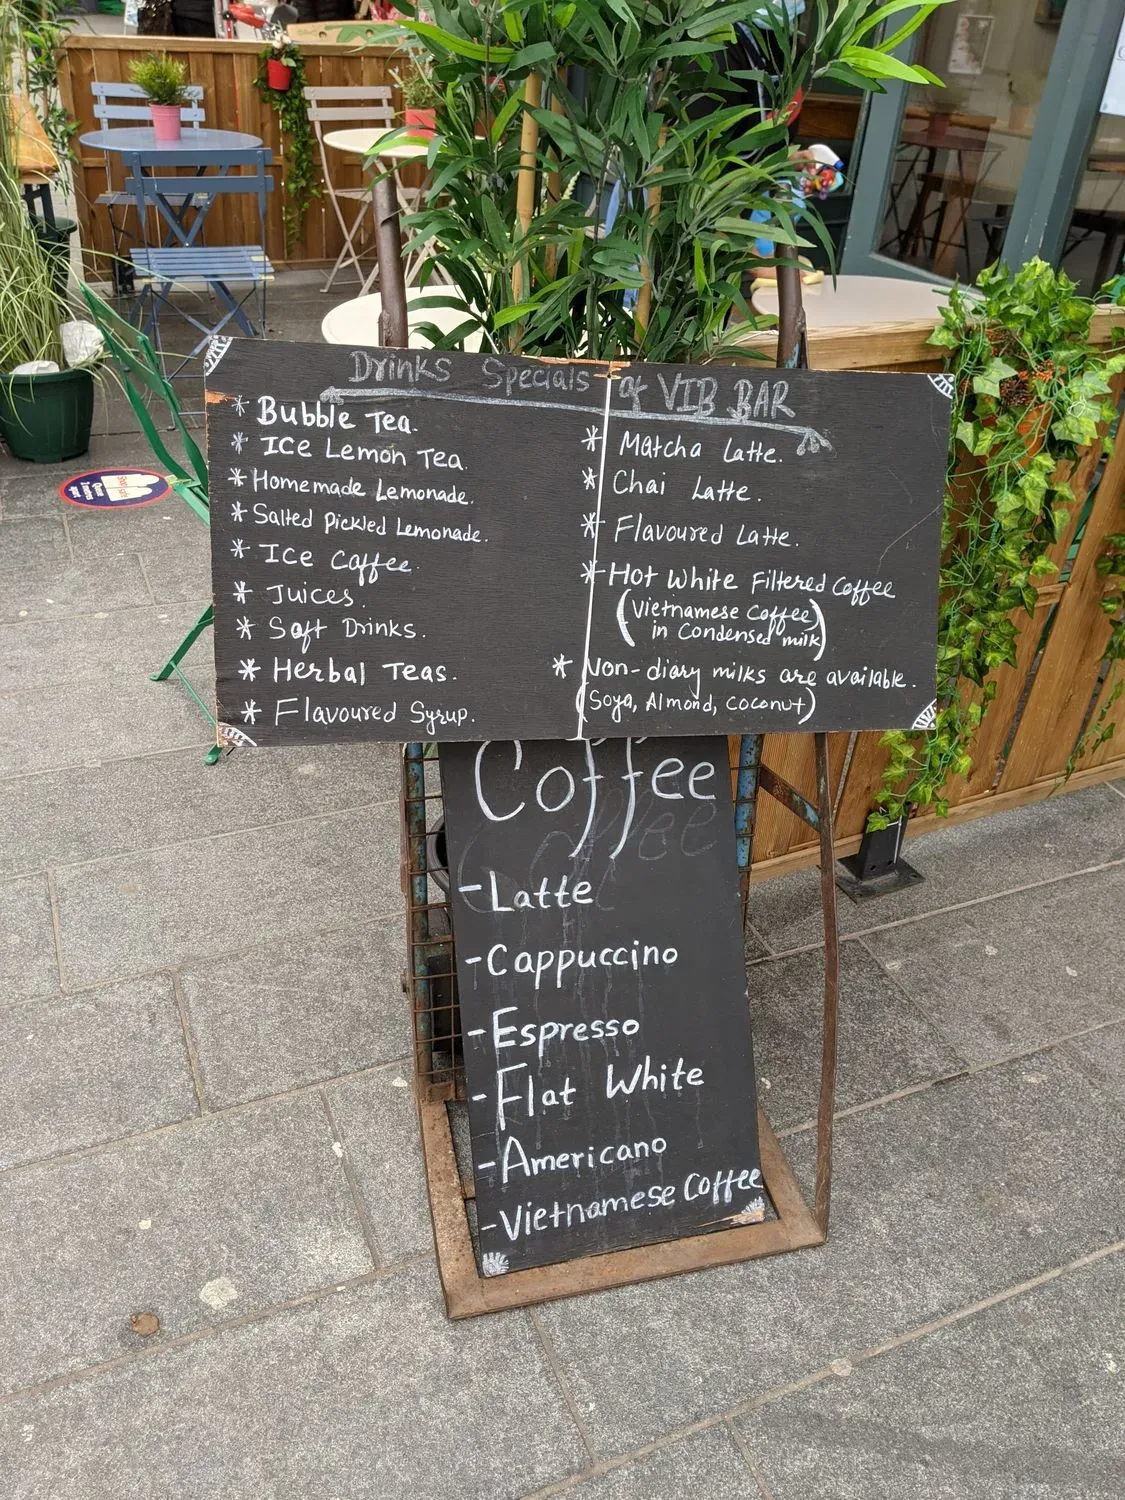 Drinks Specials of VIB BAR
* Bubble Tea.
* ICE Lemon Tea
* Homemade Lemonade.
* Salted Pickled Lemonade.
* ICE Coffee
* Juices.
* Soft Drinks.
* Herbal Teas.
* Flavoured Syrup.
* Matcha Latte.
* Chai Latte.
* Flavoured Latte.
* Hot White Filtered Coffee
(Vietnamese Coffee)
in Condensed milk)
* Non-diary milks are available.
(Soya, Almond, Coconut)
Coffee
-Latte
-Cappuccino
-Espresso
-Flat White
-Americano
-Vietnamese Coffee